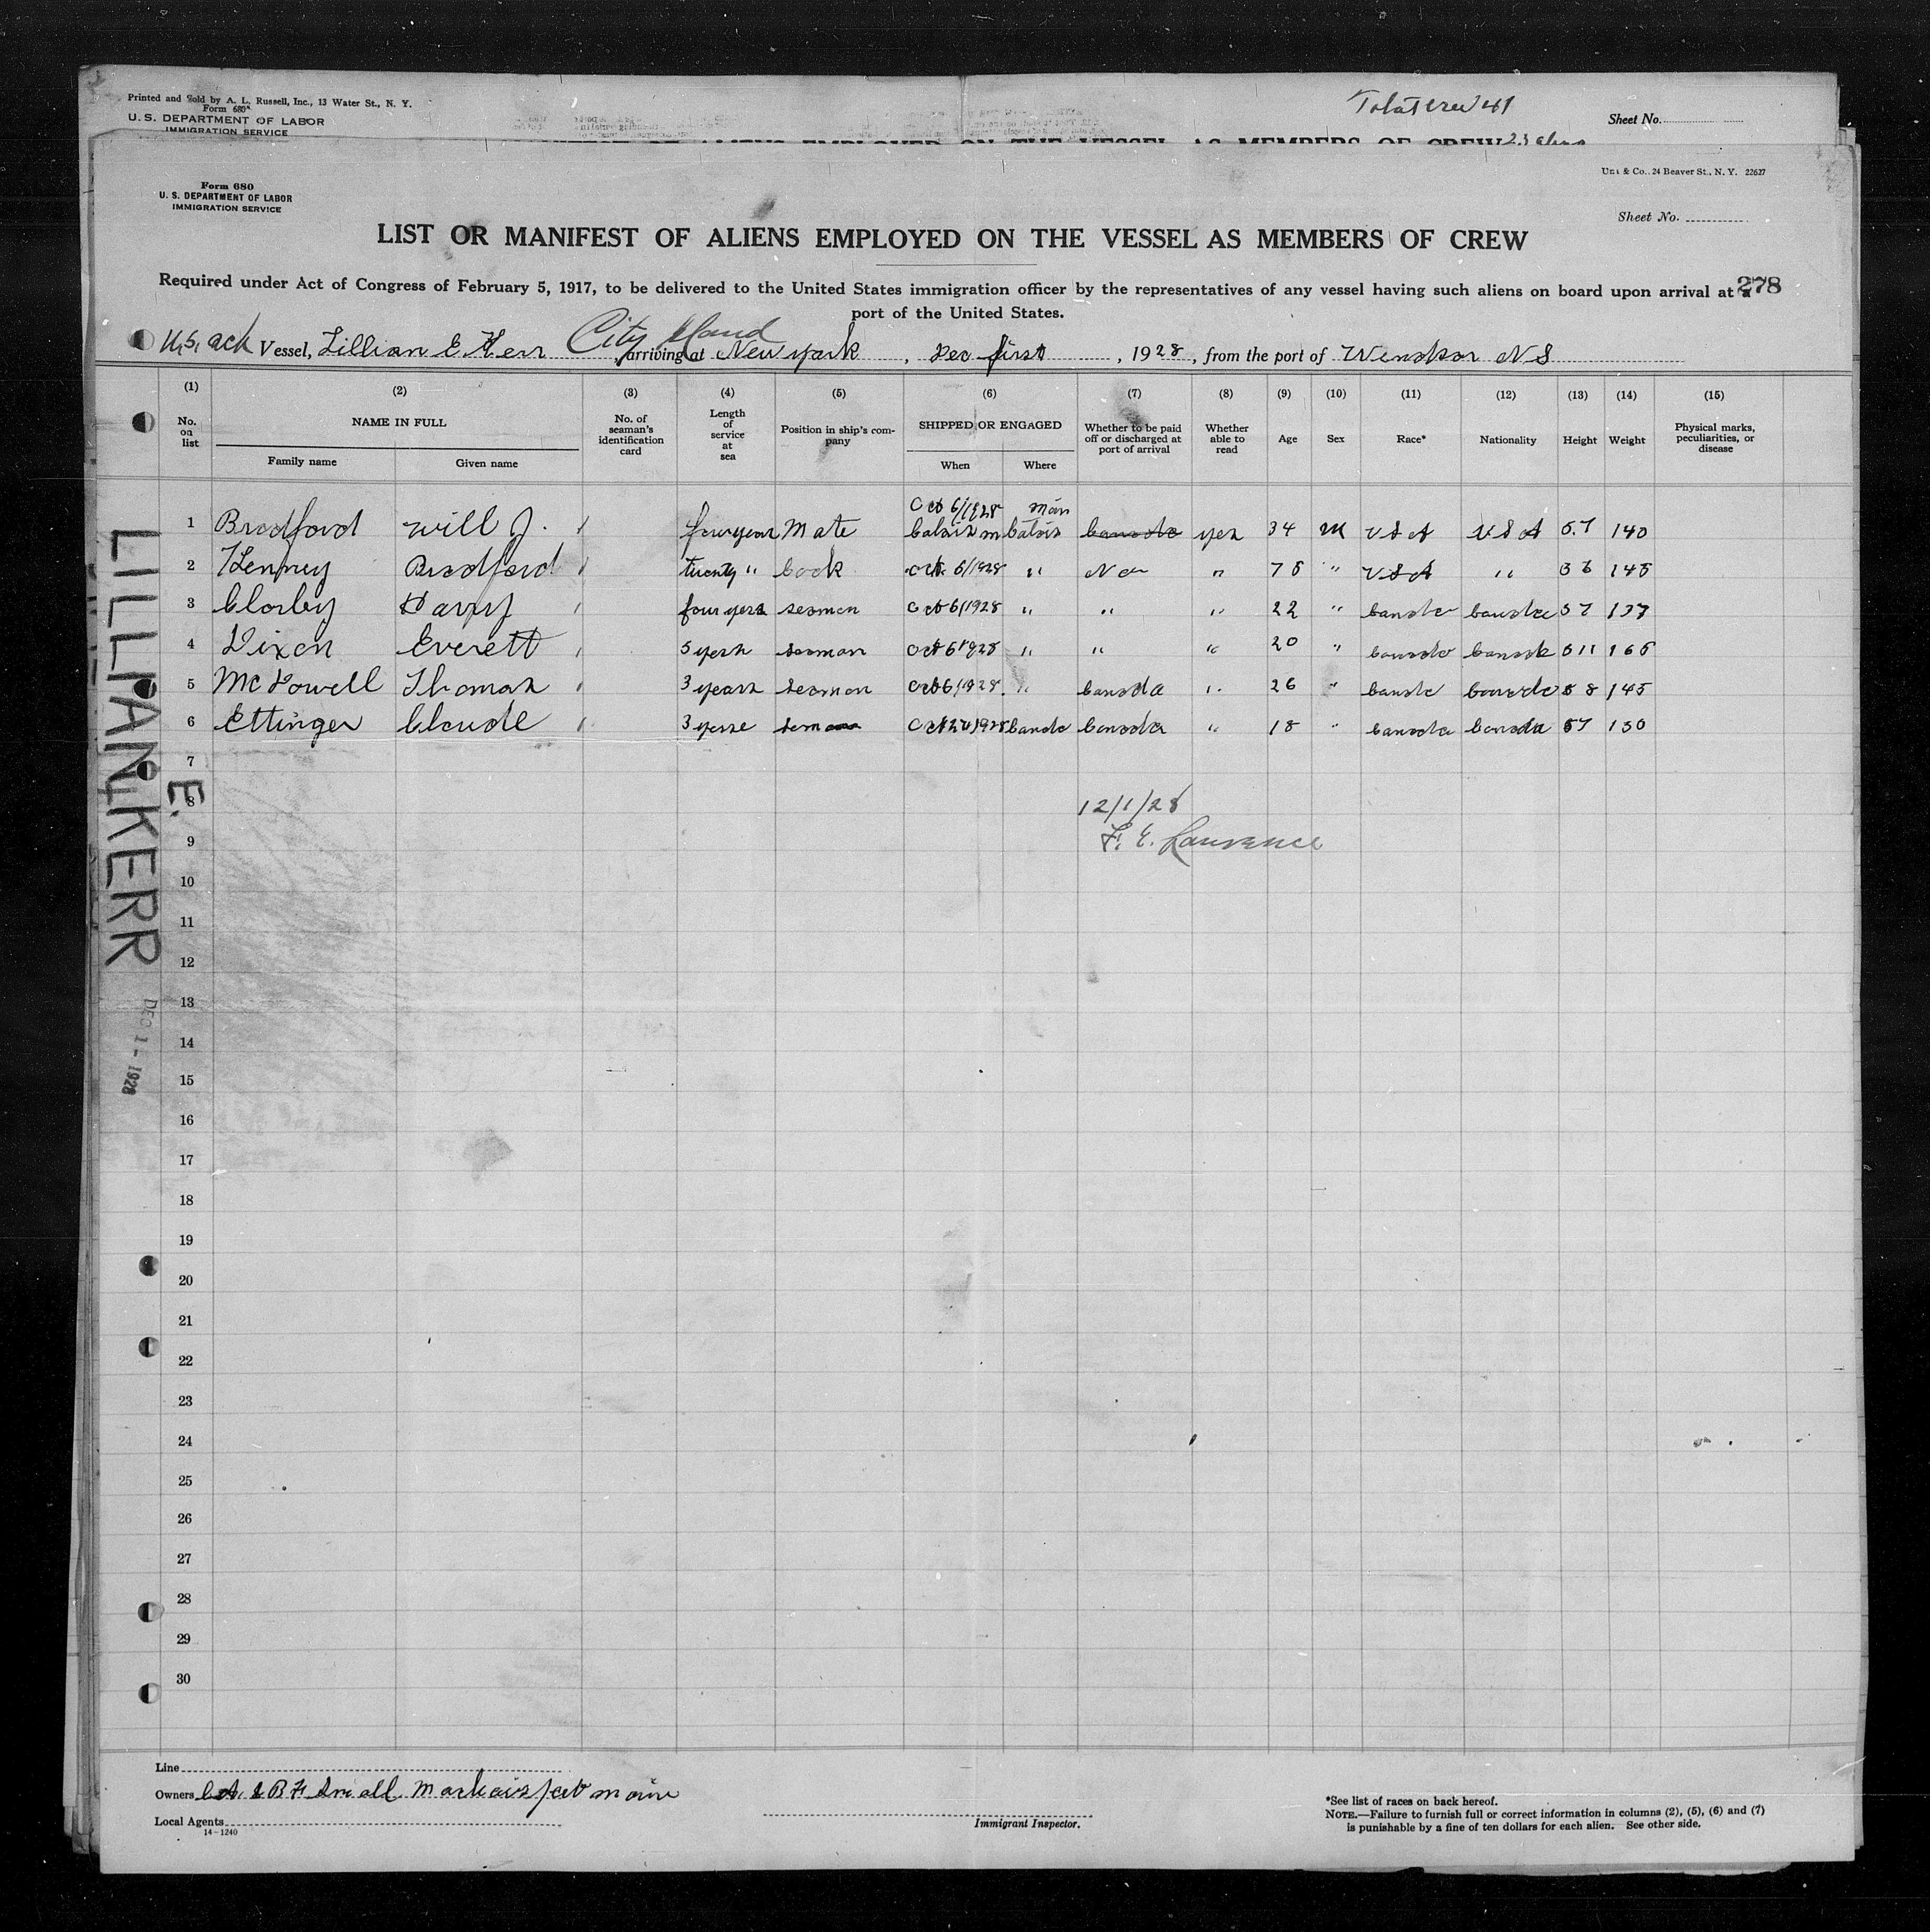 Printed and Sold by A. L. Russell, Inc., 13 Water St., N. Y.
Form 680
U. S. DEPARTMENT OF LABOR
IMMIGRATION SERVICE
Total Crew 41
Sheet No.
OF ALIENS EMPLOYED ON THE VESSEL AS MEMBERS OF CREW
Form 680
U. S. DEPARTMENT OF LABOR
IMMIGRATION SERVICE
& Co., 24 Beaver St., N. Y. 22627
Sheet No.
LIST OR MANIFEST OF ALIENS EMPLOYED ON THE VESSEL AS MEMBERS OF CREW
Required under Act of Congress of February 5, 1917, to be delivered to the United States immigration officer by the representatives of any vessel having such aliens on board upon arrival at a
port of the United States.
278
City Island
U.S. Vessel, Lillian E Kerr, arriving at New York, Dec first, 1928, from the port of Windsor N S
(1) (2) (3) (4) (5) (6) (7) (8) (9) (10) (11) (12) (13) (14) (15)
No. on list NAME IN FULL No. of seaman's identification card Length of service at sea Position in ship's company SHIPPED OR ENGAGED Whether to be paid off or discharged at port of arrival Whether able to read Age Sex Race* Nationality Height Weight Physical marks, peculiarities, or disease
Family name Given name When Where
Oct 6/1928
1 Bradford Will J. four year Mate Calais m Calais Canada yes 34 M U S A U S A 5.7 140
2 Kenney Bradford twenty " Cook Oct. 6/1928 " No " " U S A " 145
3 Clorley Harry four years seaman Oct 6/1928 " " " 22 " Canada Canada 5 7 137
4 Dixon Everett 5 years seaman Oct 6 1928 " " " 20 " Canada Canada 5 11 165
5 McDowell Thomas 3 years seaman Oct 6/1928 " Canada " 26 " Canada Canada 5 8 145
6 Ettinger Claude 3 years seaman Oct 1928 Canada Canada " 18 " Canada Canada 5 7 130
7
8
9
12/1/28
F. E. Lawrence
10
11
12
13
14
15
16
17
18
19
20
21
22
23
24
25
26
27
28
29
30
LILLIAN E. KERR
DEC 1 - 1928
Line
Owners & B F Small Machias port Maine
Local Agents
14-1240
Immigrant Inspector.
*See list of races on back hereof.
NOTE.—Failure to furnish full or correct information in columns (2), (5), (6) and (7)
is punishable by a fine of ten dollars for each alien. See other side.